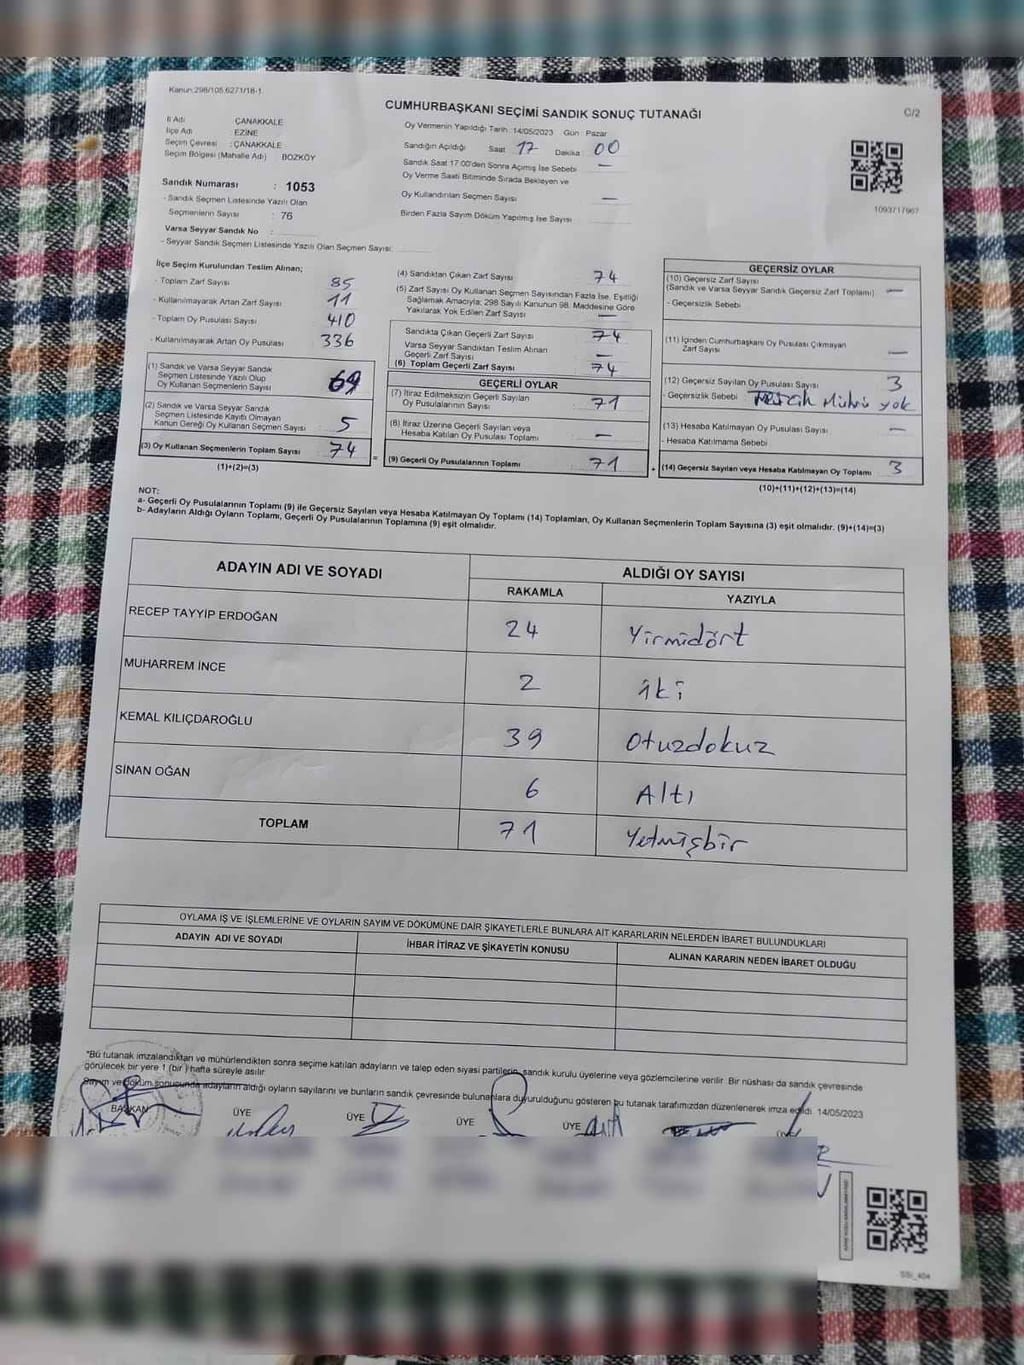 Kanun:298/105,6271/18-1
CUMHURBAŞKANI SEÇİMİ SANDIK SONUÇ TUTANAĞI
C/2
İl Adı ÇANAKKALE
İlçe Adı EZİNE
Seçim Çevresi : ÇANAKKALE
Seçim Bölgesi (Mahalle Adı) BOZKÖY
Sandık Numarası : 1053
- Sandık Seçmen Listesinde Yazılı Olan
Seçmenlerin Sayısı : 76
Varsa Seyyar Sandık No :
- Seyyar Sandık Seçmen Listesinde Yazılı Olan Seçmen Sayısı:
Oy Vermenin Yapıldığı Tarih : 14/05/2023 Gün : Pazar
Sandığın Açıldığı Saat 17 Dakika : 00
Sandık Saat 17:00'den Sonra Açımış İse Sebebi —
Oy Verme Saati Bitiminde Sırada Bekleyen ve
Oy Kullandırılan Seçmen Sayısı —
Birden Fazla Sayım Döküm Yapılmış İse Sayısı
1093717967
İlçe Seçim Kurulundan Teslim Alınan;
- Toplam Zarf Sayısı 85
- Kullanılmayarak Artan Zarf Sayısı 11
- Toplam Oy Pusulası Sayısı 410
- Kullanılmayarak Artan Oy Pusulası 336
(1) Sandık ve Varsa Seyyar Sandık
Seçmen Listesinde Yazılı Olup
Oy Kullanan Seçmenlerin Sayısı 69
(2) Sandık ve Varsa Seyyar Sandık
Seçmen Listesinde Kayıtlı Olmayan
Kanun Gereği Oy Kullanan Seçmen Sayısı 5
(3) Oy Kullanan Seçmenlerin Toplam Sayısı 74
(1)+(2)=(3)
(4) Sandıktan Çıkan Zarf Sayısı 74
(5) Zarf Sayısı Oy Kullanan Seçmen Sayısından Fazla İse, Eşitliği
Sağlamak Amacıyla; 298 Sayılı Kanunun 98. Maddesine Göre
Yakılarak Yok Edilen Zarf Sayısı —
Sandıkta Çıkan Geçerli Zarf Sayısı 74
Varsa Seyyar Sandıktan Teslim Alınan
Geçerli Zarf Sayısı —
(6) Toplam Geçerli Zarf Sayısı 74
GEÇERLİ OYLAR
(7) İtiraz Edilmeksizin Geçerli Sayılan
Oy Pusulalarının Sayısı 71
(8) İtiraz Üzerine Geçerli Sayılan veya
Hesaba Katılan Oy Pusulası Toplamı —
= (9) Geçerli Oy Pusulalarının Toplamı 71 +
GEÇERSİZ OYLAR
(10) Geçersiz Zarf Sayısı
(Sandık ve Varsa Seyyar Sandık Geçersiz Zarf Toplamı) —
- Geçersizlik Sebebi
(11) İçinden Cumhurbaşkanı Oy Pusulası Çıkmayan
Zarf Sayısı —
(12) Geçersiz Sayılan Oy Pusulası Sayısı 3
- Geçersizlik Sebebi Tercih Mührü yok
(13) Hesaba Katılmayan Oy Pusulası Sayısı —
- Hesaba Katılmama Sebebi
(14) Geçersiz Sayılan veya Hesaba Katılmayan Oy Toplamı 3
(10)+(11)+(12)+(13)=(14)
NOT:
a- Geçerli Oy Pusulalarının Toplamı (9) ile Geçersiz Sayılan veya Hesaba Katılmayan Oy Toplamı (14) Toplamları, Oy Kullanan Seçmenlerin Toplam Sayısına (3) eşit olmalıdır. (9)+(14)=(3)
b- Adayların Aldığı Oyların Toplamı, Geçerli Oy Pusulalarının Toplamına (9) eşit olmalıdır.
ADAYIN ADI VE SOYADI
ALDIĞI OY SAYISI
RAKAMLA YAZIYLA
RECEP TAYYİP ERDOĞAN 24 Yirmidört
MUHARREM İNCE 2 iki
KEMAL KILIÇDAROĞLU 39 Otuzdokuz
SİNAN OĞAN 6 Altı
TOPLAM 71 Yetmişbir
OYLAMA İŞ VE İŞLEMLERİNE VE OYLARIN SAYIM VE DÖKÜMÜNE DAİR ŞİKAYETLERLE BUNLARA AİT KARARLARIN NELERDEN İBARET BULUNDUKLARI
ADAYIN ADI VE SOYADI İHBAR İTİRAZ VE ŞİKAYETİN KONUSU ALINAN KARARIN NEDEN İBARET OLDUĞU
*Bu tutanak imzalandıktan ve mühürlendikten sonra seçime katılan adayların ve talep eden siyasi partilerin, sandık kurulu üyelerine veya gözlemcilerine verilir. Bir nüshası da sandık çevresinde
görülecek bir yere 1 (bir) hafta süreyle asılır.
Sayım ve döküm sonucunda adayların aldığı oyların sayılarını ve bunların sandık çevresinde bulunanlara duyurulduğunu gösteren bu tutanak tarafımızdan düzenlenerek imza edildi. 14/05/2023
BAŞKAN ÜYE ÜYE ÜYE ÜYE
SSİ_404